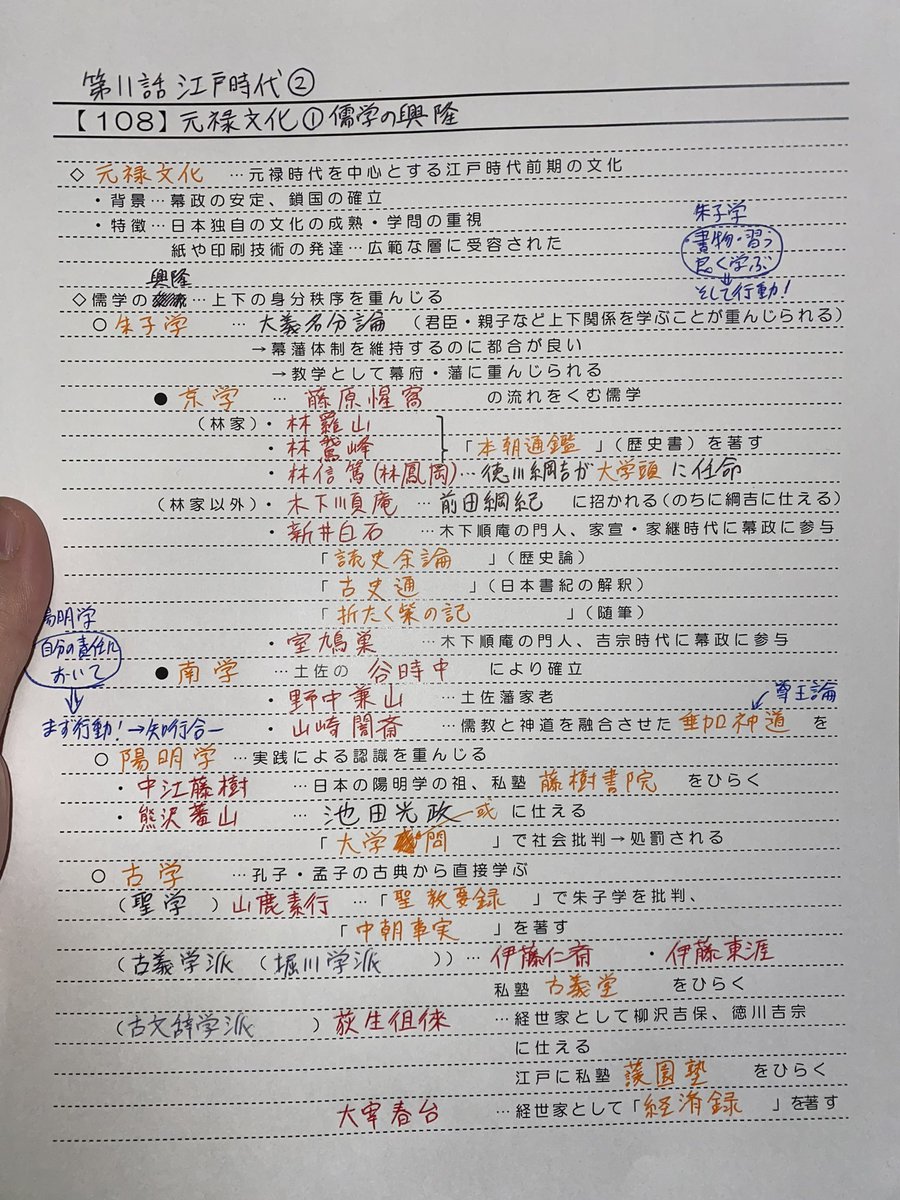 第11話 江戸時代②
【108】元禄文化①儒学の興隆
◇ 元禄文化 …元禄時代を中心とする江戸時代前期の文化
・背景…幕政の安定、鎖国の確立
・特徴…日本独自の文化の成熟・学問の重視
紙や印刷技術の発達…広範な層に受容された
朱子学
書物・習う
良く学ぶ
そして行動!
興隆
◇儒学の…上下の身分秩序を重んじる
○ 朱子学 … 大義名分論 (君臣・親子など上下関係を学ぶことが重んじられる)
→幕藩体制を維持するのに都合が良い
→教学として幕府・藩に重んじられる
● 京学 … 藤原惺窩 の流れをくむ儒学
(林家)・林羅山
・林鵞峰 「本朝通鑑」(歴史書)を著す
・林信篤(林鳳岡)…徳川綱吉が大学頭に任命
(林家以外)・木下順庵 …前田綱紀 に招かれる(のちに綱吉に仕える)
・新井白石 …木下順庵の門人、家宣・家継時代に幕政に参与
「読史余論」(歴史論)
「古史通」(日本書紀の解釈)
「折たく柴の記」(随筆)
・室鳩巣 …木下順庵の門人、吉宗時代に幕政に参与
● 南学 …土佐の 谷時中 により確立
・野中兼山 …土佐藩家老
尊王論
・山崎闇斎 …儒教と神道を融合させた 垂加神道 を
陽明学
自分の責任に
おいて
まず行動!→知行合一
○ 陽明学 …実践による認識を重んじる
・中江藤樹 …日本の陽明学の祖、私塾 藤樹書院 をひらく
・熊沢蕃山 … 池田光政 に仕える
「大学或問」で社会批判→処罰される
○ 古学 …孔子・孟子の古典から直接学ぶ
(聖学)山鹿素行 …「聖教要録」で朱子学を批判、
「中朝事実」を著す
(古義学派(堀川学派))…伊藤仁斎 ・伊藤東涯
私塾 古義堂 をひらく
(古文辞学派)荻生徂徠 …経世家として柳沢吉保、徳川吉宗
に仕える
江戸に私塾 蘐園塾 をひらく
太宰春台 …経世家として「経済録」を著す